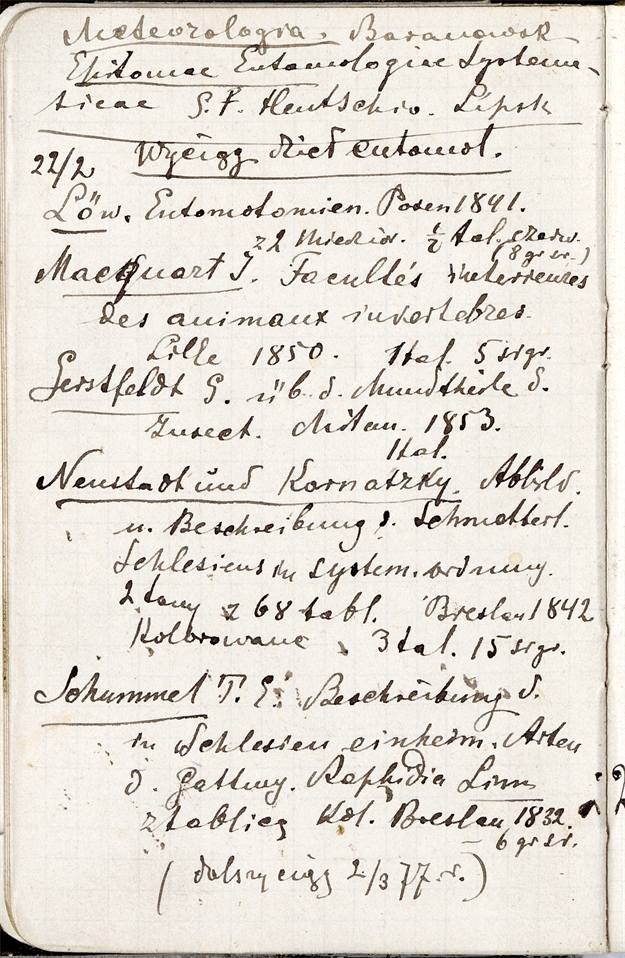 Meteorologia. Baranowsk
Epitomae Entomologiae Systema-
ticae G. F. Hentschio. Lipsk
22/2 Wyciąg dzieł entomol.
Löw. Entomotomien. Posen 1841.
z 2 miedzior. ½ tal. czerw.
(8 gr. sr.)
Macquart J. Facultés interieures
des animaux invertebres.
Lille 1850. 1 tal. 5 srgr.
Gerstfeldt G. üb. d. Mundtheile d.
Insect. Mitau. 1853.
1 tal.
Neustadt und Kornatzky. Abbild.
u. Beschreibung d. Schmetterl.
Schlesiens in system. ordnung.
2 tomy z 68 tabl. Breslau 1842
Kolorowane 3 tal. 15 srgr.
Schummel T. E. Beschreibung d.
in Schlesien einheim. Arten
d. Gattung. Raphidia Linn
z tablicą Kol. Breslau 1832.
– 6 gr sr.
(dalszy ciąg 2/3 77. r.)